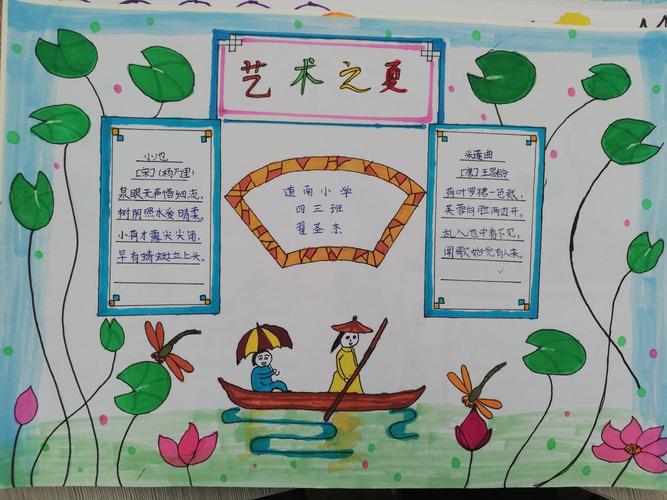 艺术之夏
小池
[宋](杨万里)
泉眼无声惜细流,
树阴照水爱晴柔。
小荷才露尖尖角,
早有蜻蜓立上头。
道南小学
四三班
翟圣杰
采莲曲
[唐]王昌龄
荷叶罗裙一色裁,
芙蓉向脸两边开。
乱入池中看不见,
闻歌始觉有人来。